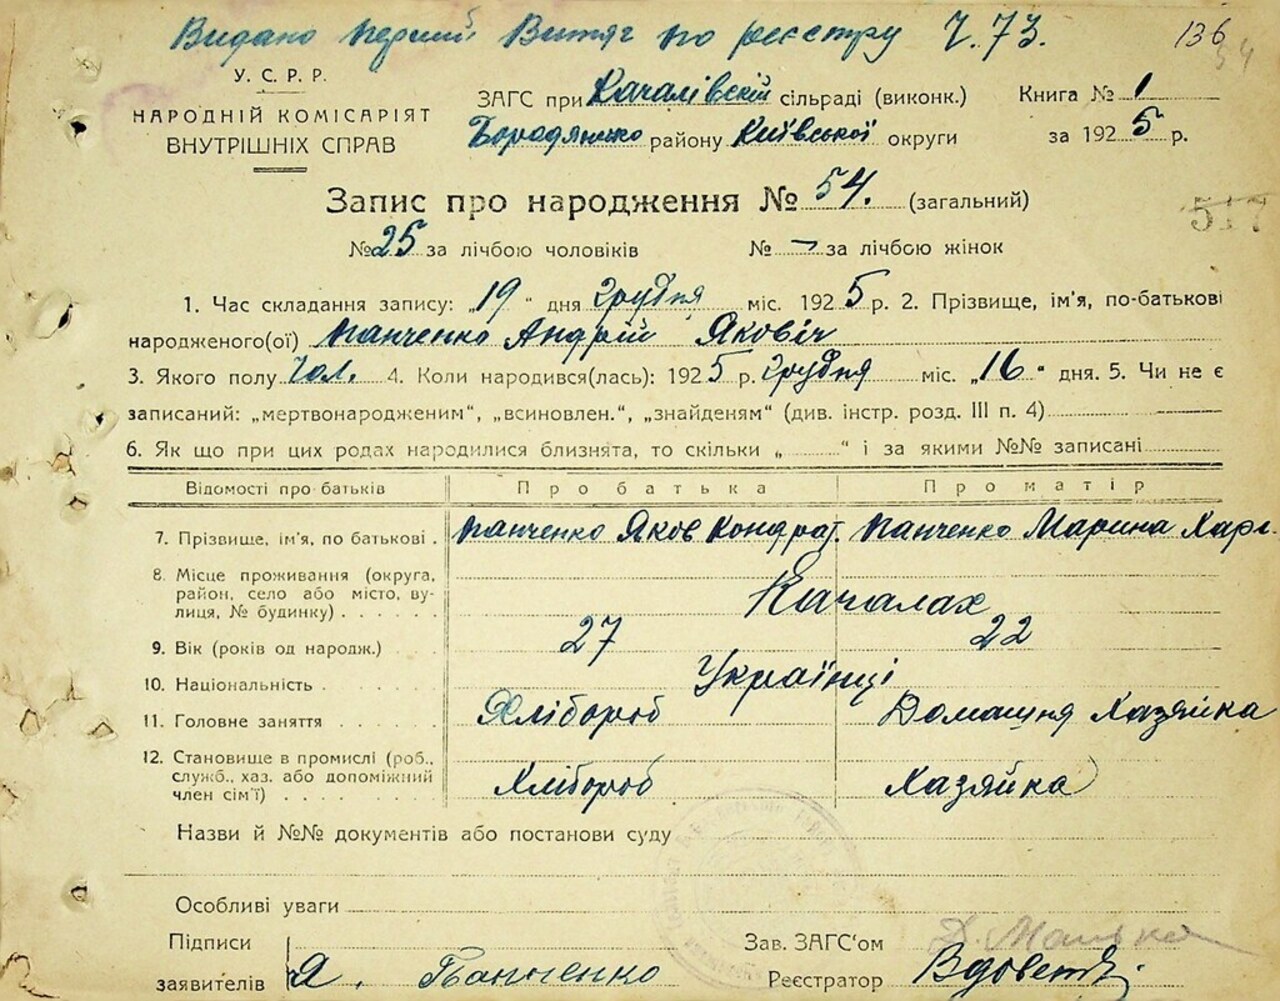 Видано перший Витяг по реєстру Ч. 73.
136
У. С. Р. Р.
НАРОДНІЙ КОМІСАРІЯТ
ВНУТРІШНІХ СПРАВ
ЗАГС при Качалівскій сільраді (виконк.)
Бородянсько району Київської округи
Книга № 1
за 1925 р.
Запис про народження № 54. (загальний)
517
№ 25 за лічбою чоловіків № — за лічбою жінок
1. Час складання запису: „19" дня Грудня міс. 1925 р. 2. Прізвище, ім'я, по-батькові
народженого(ої) Панченко Андрій Яковіч
3. Якого полу Чол. 4. Коли народився(лась): 1925 р. Грудня міс. „16" дня. 5. Чи не є
записаний: „мертвонародженим", „всиновлен.", „знайденям" (див. інстр. розд. III п. 4)
6. Як що при цих родах народилися близнята, то скільки „ " і за якими №№ записані
Відомості про батьків Про батька Про матір
7. Прізвище, ім'я, по батькові . Панченко Яков Кондрат. Панченко Марина Харл.
8. Місце проживання (округа,
район, село або місто, ву-
лиця, № будинку) . . . . . Качалах
9. Вік (років од народж.) . . . 27 22
10. Національність . . . . . . Українці
11. Головне заняття . . . . . Хлібороб Домашня Хазяйка
12. Становище в промислі (роб.,
служб., хаз. або допоміжний
член сім'ї) . . . . . . . . Хлібороб Хазяйка
Назви й №№ документів або постанови суду
Особливі уваги
Підписи
заявителів Я. Панченко
Зав. ЗАГС'ом
Реєстратор